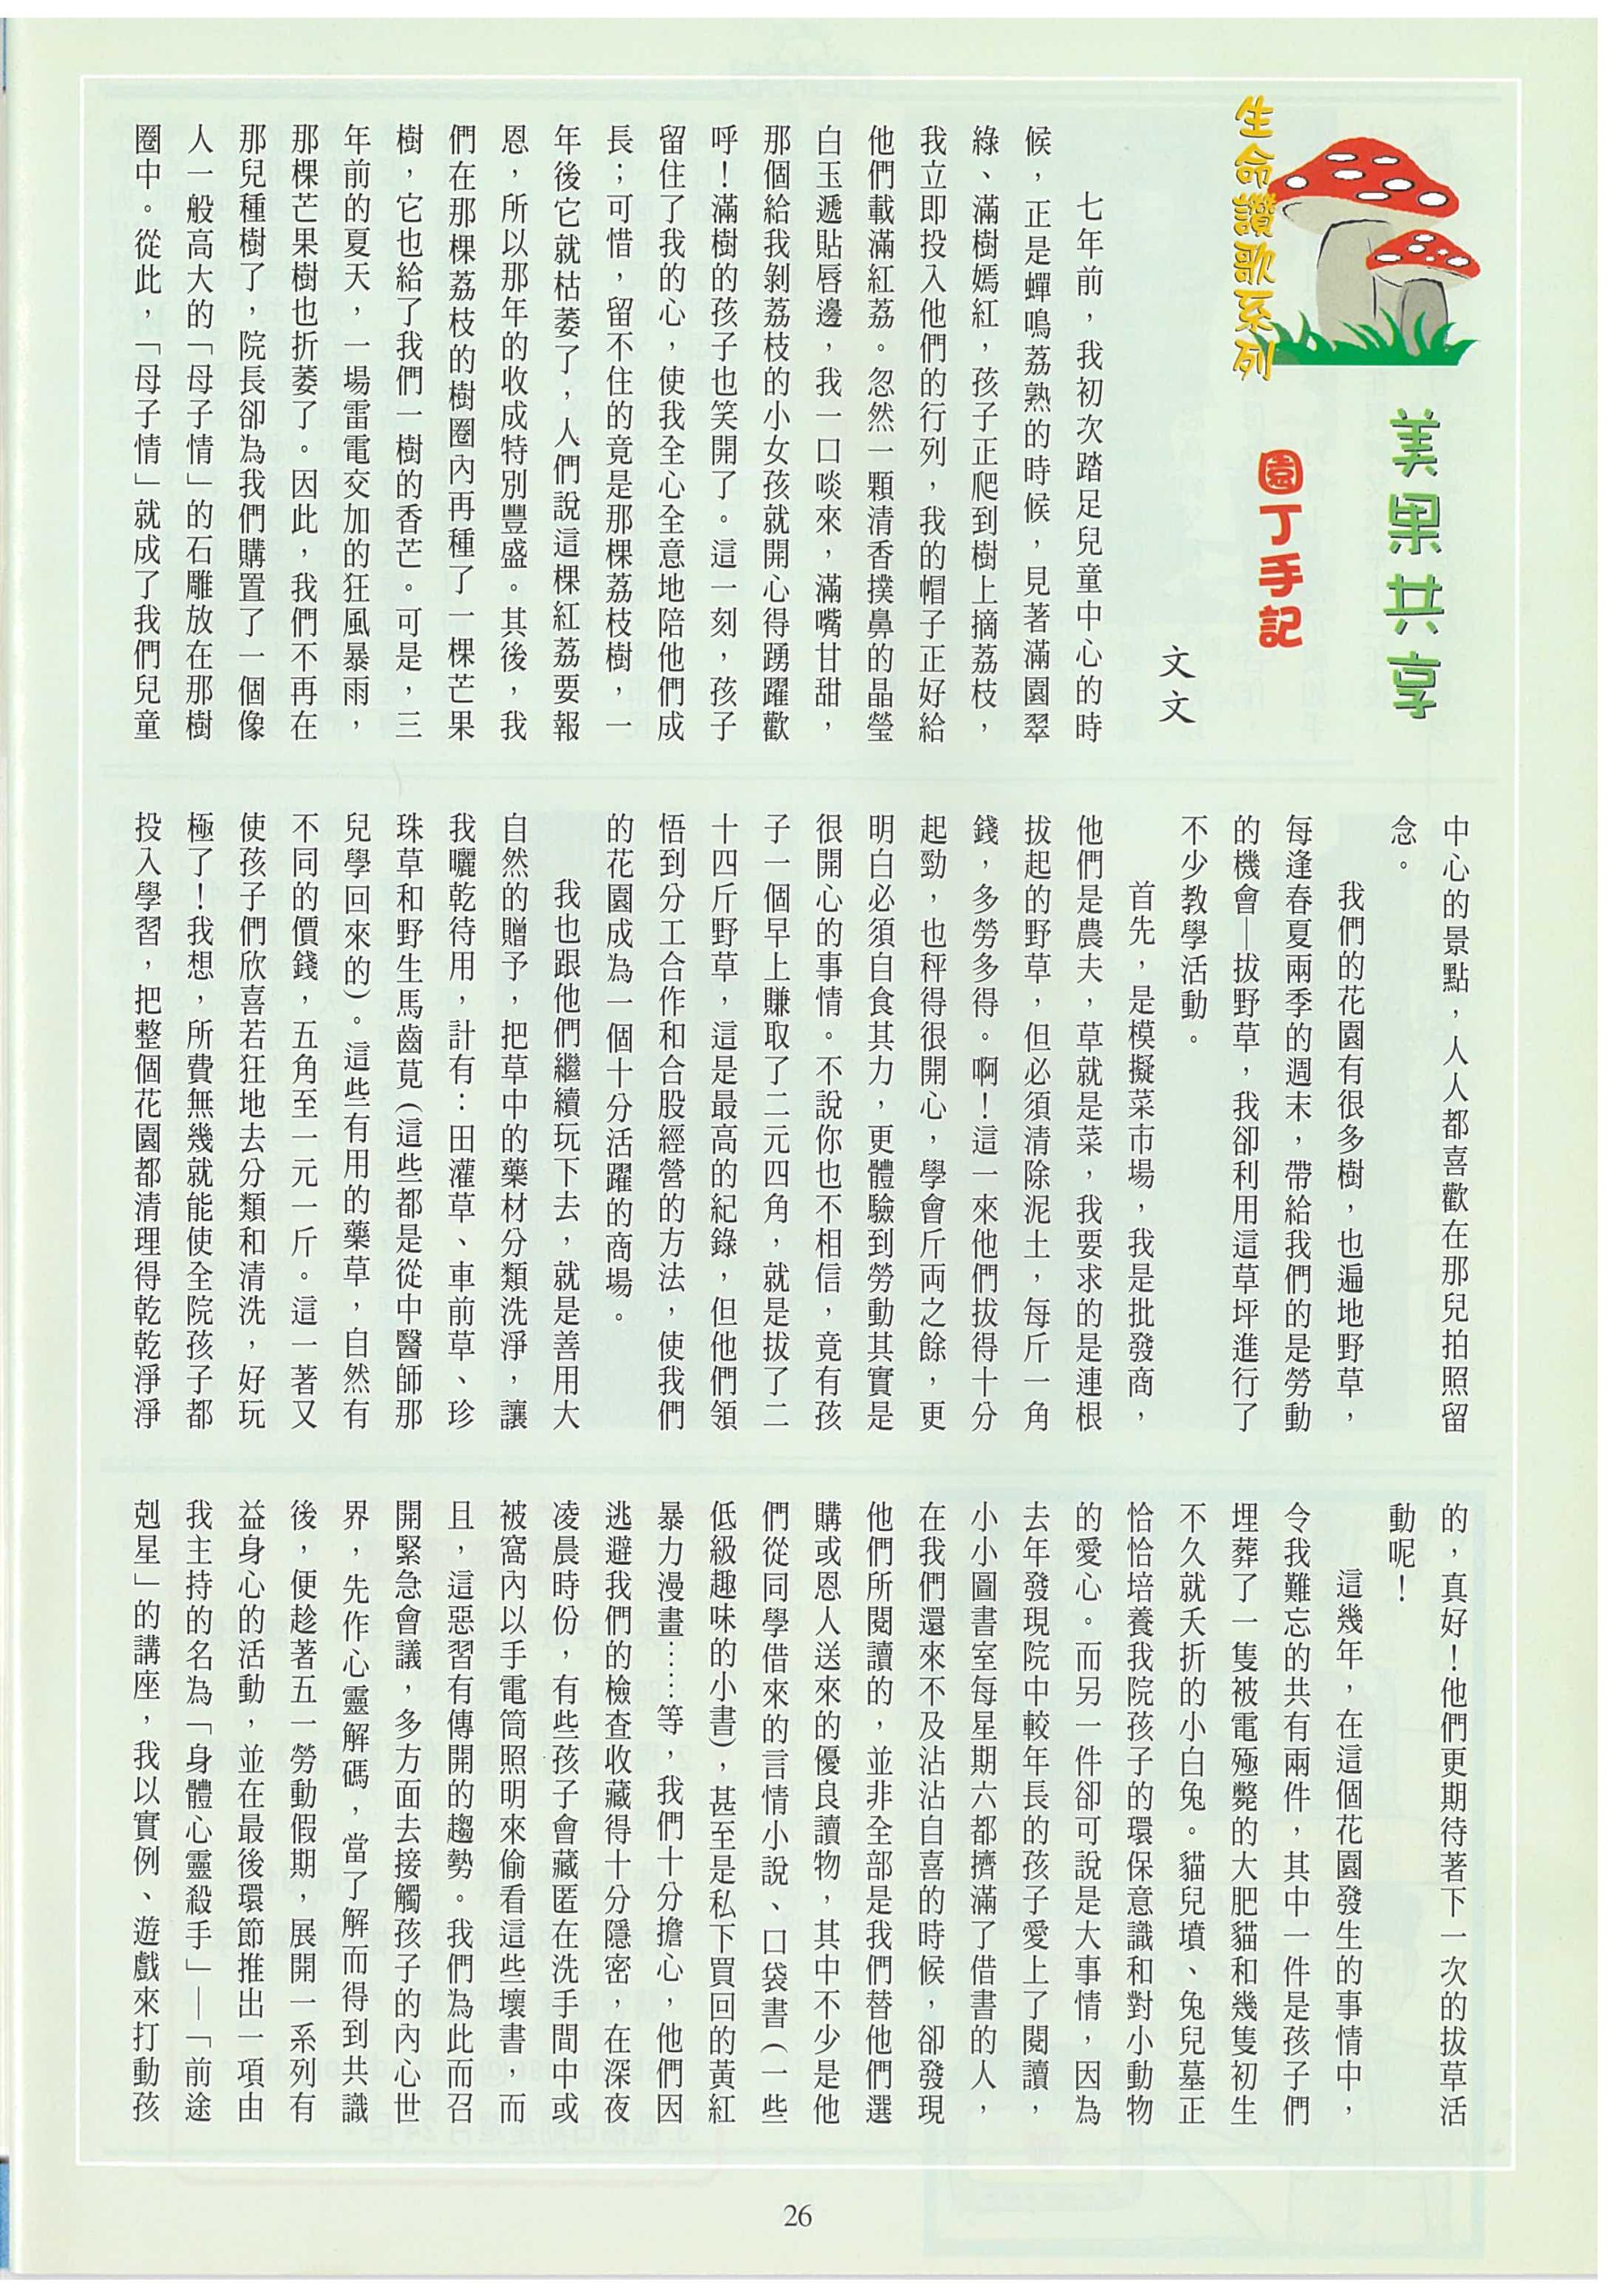 生命讚歌系列
美果共享
園丁手記
文文
七年前，我初次踏足兒童中心的時
候，正是蟬鳴荔熟的時候，見著滿園翠
綠、滿樹嫣紅，孩子正爬到樹上摘荔枝，
我立即投入他們的行列，我的帽子正好給
他們載滿紅荔。忽然一顆清香撲鼻的晶瑩
白玉遞貼唇邊，我一口啖來，滿嘴甘甜，
那個給我剝荔枝的小女孩就開心得踴躍歡
呼！滿樹的孩子也笑開了。這一刻，孩子
留住了我的心，使我全心全意地陪他們成
長；可惜，留不住的竟是那棵荔枝樹，一
年後它就枯萎了，人們說這棵紅荔要報
恩，所以那年的收成特別豐盛。其後，我
們在那棵荔枝的樹圈內再種了一棵芒果
樹，它也給了我們一樹的香芒。可是，三
年前的夏天，一場雷電交加的狂風暴雨，
那棵芒果樹也折萎了。因此，我們不再在
那兒種樹了，院長卻為我們購置了一個像
人一般高大的「母子情」的石雕放在那樹
圈中。從此，「母子情」就成了我們兒童
中心的景點，人人都喜歡在那兒拍照留
念。
我們的花園有很多樹，也遍地野草，
每逢春夏兩季的週末，帶給我們的是勞動
的機會—拔野草，我卻利用這草坪進行了
不少教學活動。
首先，是模擬菜市場，我是批發商，
他們是農夫，草就是菜，我要求的是連根
拔起的野草，但必須清除泥土，每斤一角
錢，多勞多得。啊！這一來他們拔得十分
起勁，也秤得很開心，學會斤両之餘，更
明白必須自食其力，更體驗到勞動其實是
很開心的事情。不說你也不相信，竟有孩
子一個早上賺取了二元四角，就是拔了二
十四斤野草，這是最高的紀錄，但他們領
悟到分工合作和合股經營的方法，使我們
的花園成為一個十分活躍的商場。
我也跟他們繼續玩下去，就是善用大
自然的贈予，把草中的藥材分類洗淨，讓
我曬乾待用，計有：田灌草、車前草、珍
珠草和野生馬齒莧(這些都是從中醫師那
兒學回來的)。這些有用的藥草，自然有
不同的價錢，五角至一元一斤。這一著又
使孩子們欣喜若狂地去分類和清洗，好玩
極了！我想，所費無幾就能使全院孩子都
投入學習，把整個花園都清理得乾乾淨淨
的，真好！他們更期待著下一次的拔草活
動呢！
這幾年，在這個花園發生的事情中，
令我難忘的共有兩件，其中一件是孩子們
埋葬了一隻被電殛斃的大肥貓和幾隻初生
不久就夭折的小白兔。貓兒墳、兔兒墓正
恰恰培養我院孩子的環保意識和對小動物
的愛心。而另一件卻可說是大事情，因為
去年發現院中較年長的孩子愛上了閱讀，
小小圖書室每星期六都擠滿了借書的人，
在我們還來不及沾沾自喜的時候，卻發現
他們所閱讀的，並非全部是我們替他們選
購或恩人送來的優良讀物，其中不少是他
們從同學借來的言情小說、口袋書(一些
低級趣味的小書)，甚至是私下買回的黃紅
暴力漫畫……等，我們十分擔心，他們因
逃避我們的檢查收藏得十分隱密，在深夜
凌晨時份，有些孩子會藏匿在洗手間中或
被窩內以手電筒照明來偷看這些壞書，而
且，這惡習有傳開的趨勢。我們為此而召
開緊急會議，多方面去接觸孩子的內心世
界，先作心靈解碼，當了解而得到共識
後，便趁著五一勞動假期，展開一系列有
益身心的活動，並在最後環節推出一項由
我主持的名為「身體心靈殺手」—「前途
剋星」的講座，我以實例、遊戲來打動孩
26